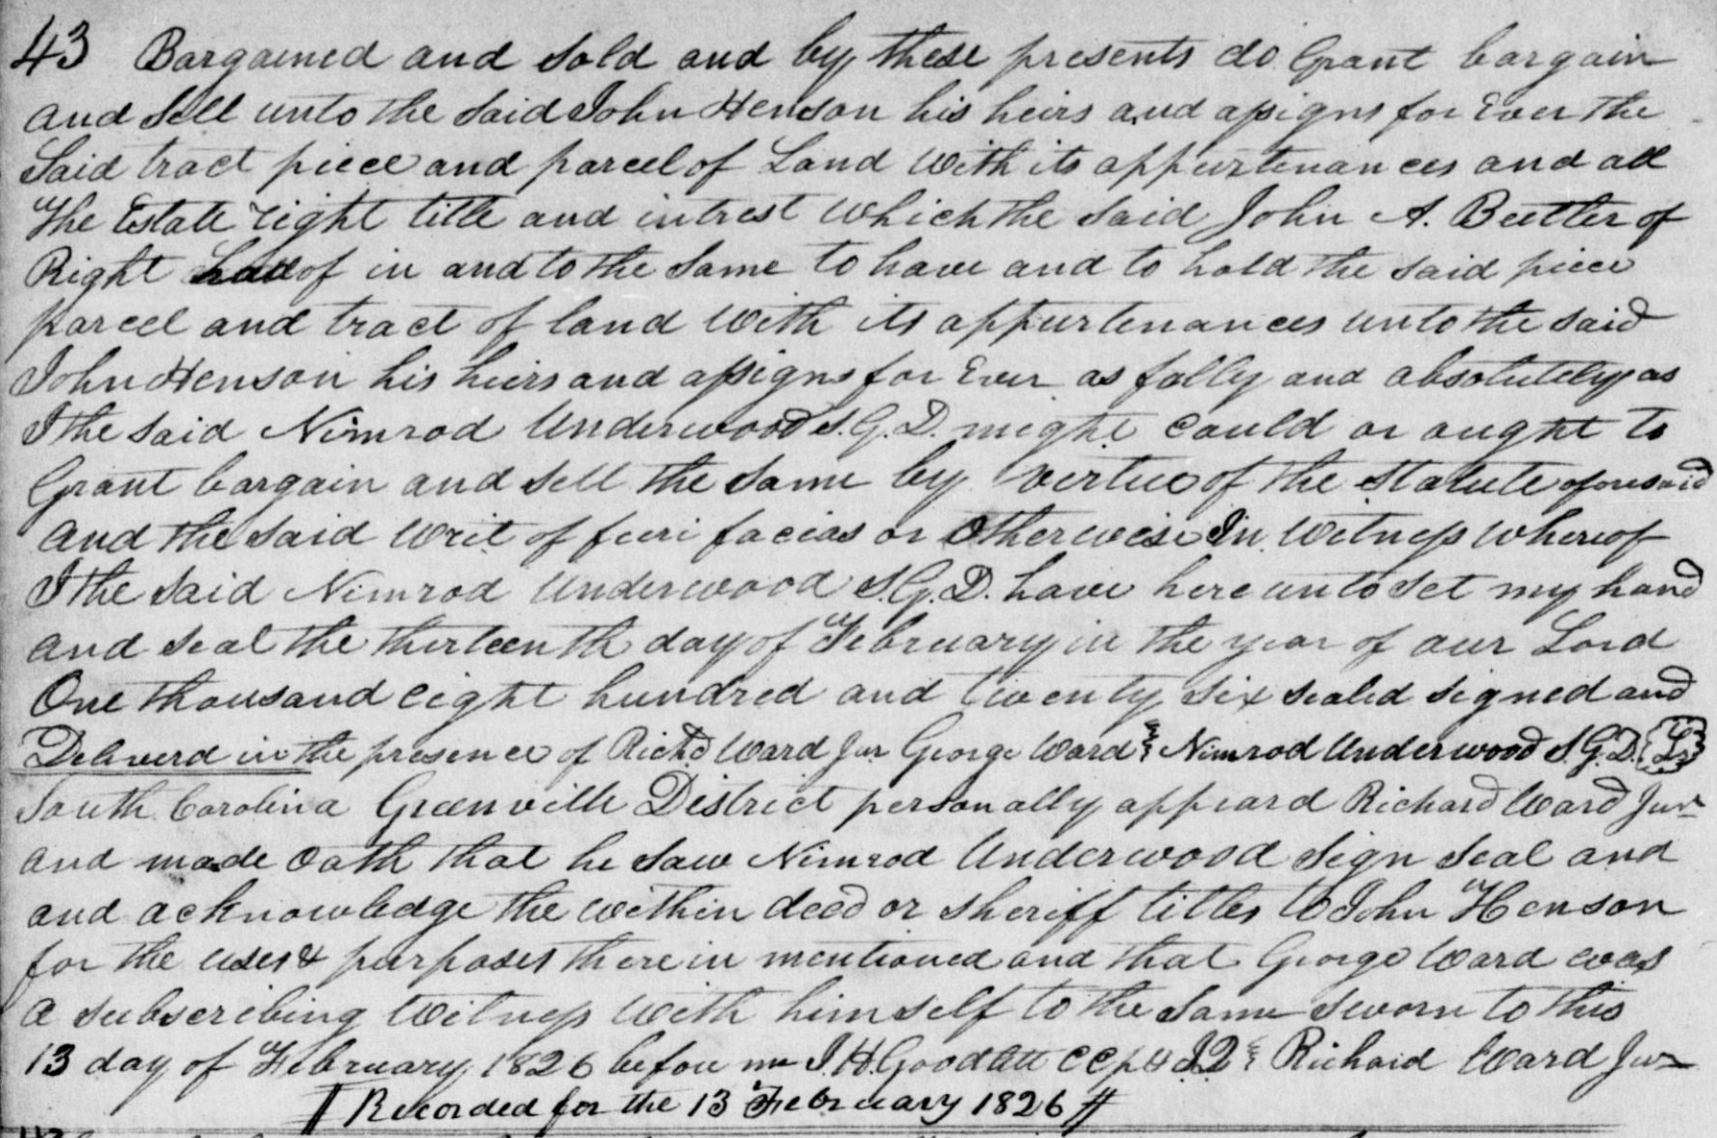 43 Bargained and Sold and by these presents do Grant bargain
and Sell unto the Said John Henson his heirs and assigns for Ever the
Said tract piece and parcel of Land with its appurtenances and all
the Estate right title and intrest which the Said John A. Butler of
Right had of in and to the Same to have and to hold the said piece
parcel and tract of land with its appurtenances unto the said
John Henson his heirs and assigns for Ever as fully and absolutely as
I the Said Nimrod Underwood S.G.D. might could or ought to
Grant bargain and sell the Same by virtue of the Statute aforesaid
and the said writ of fieri facias or otherwise In Witness whereof
I the Said Nimrod Underwood S.G.D. have here unto Set my hand
and seal the thirteenth day of February in the year of our Lord
One thousand eight hundred and twenty six sealed signed and
Deliverd in the presence of Richd Ward Jur George Ward Nimrod Underwood S.G.D.
South Carolina Greenville District personally appeard Richard Ward Jur
and made oath that he Saw Nimrod Underwood Sign Seal and
and acknowledge the within deed or sheriff titles to John Henson
for the uses & purposes therein mentioned and that George Ward was
a subscribing Witness with himself to the Same Sworn to this
13 day of February 1826 before me J.H. Goodlett CCp & Q Richard Ward Jur
Recorded for the 13 February 1826